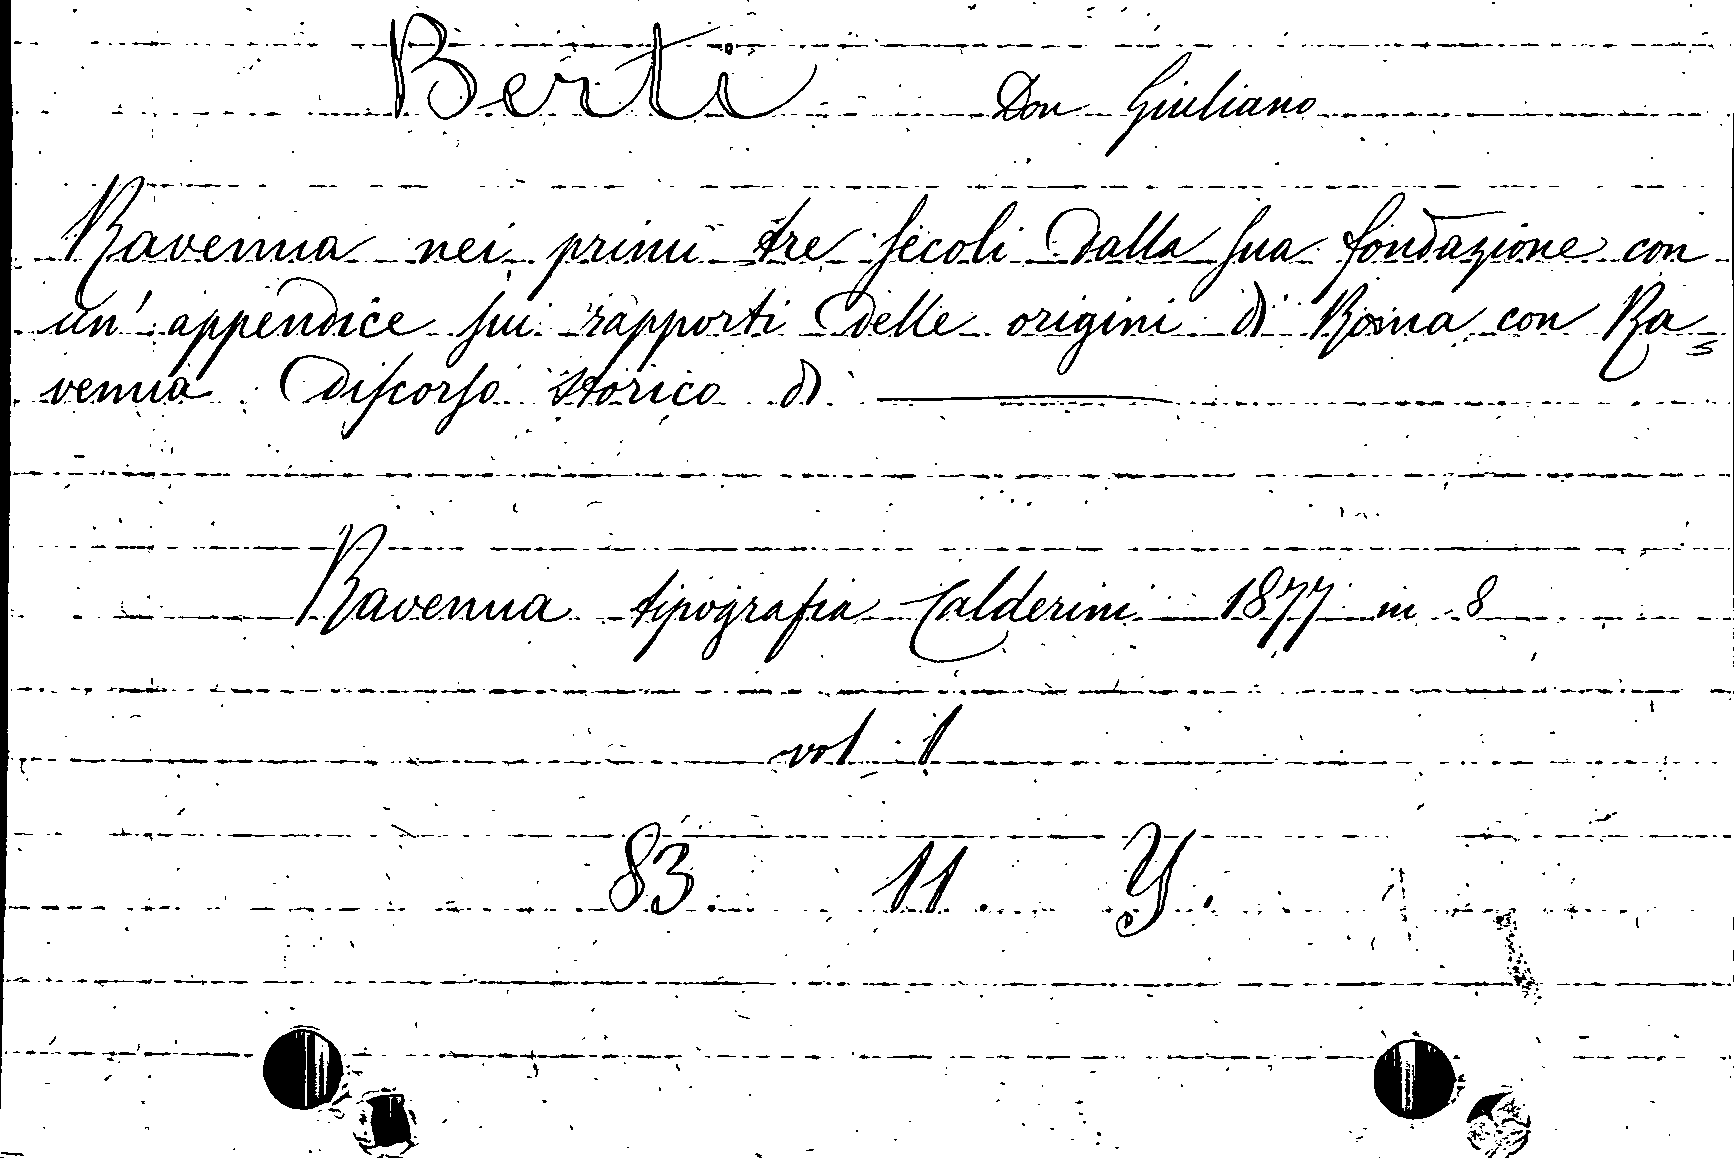 Berti Don Giuliano
Ravenna nei primi tre secoli dalla sua fondazione con
un' appendice sui rapporti delle origini di Roma con Ra=
venna. Discorso storico di ———
Ravenna tipografia Calderini 1877 in 8
vol. 1
83. 11. Y.